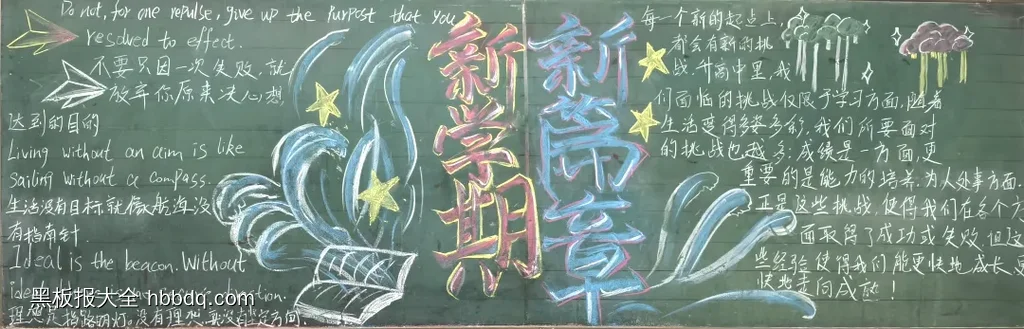 Do not, for one repulse, give up the Purpost that you
resolved to effect.
不要只因一次失败，就
放弃你原来决心想
达到的目的
Living without an aim is like
sailing without a compass.
生活没有目标就像航海没
有指南针.
Ideal is the beacon. Without
direction.
理想是指路明灯。没有理想，就没有坚定方向.
黑板报大全 hbbdq.com
新学期
新篇章
每一个新的起点上，
都会有新的挑
战.升高中里，我
们面临的挑战仅限于学习方面，随着
生活变得多姿多彩，我们所要面对
的挑战也越多：成绩是一方面，更
重要的是能力的培养.为人处事方面.
正是这些挑战，使得我们在各个方
面取得了成功或失败.但这
些经验使得我们能更快地成长，更
快地走向成熟！